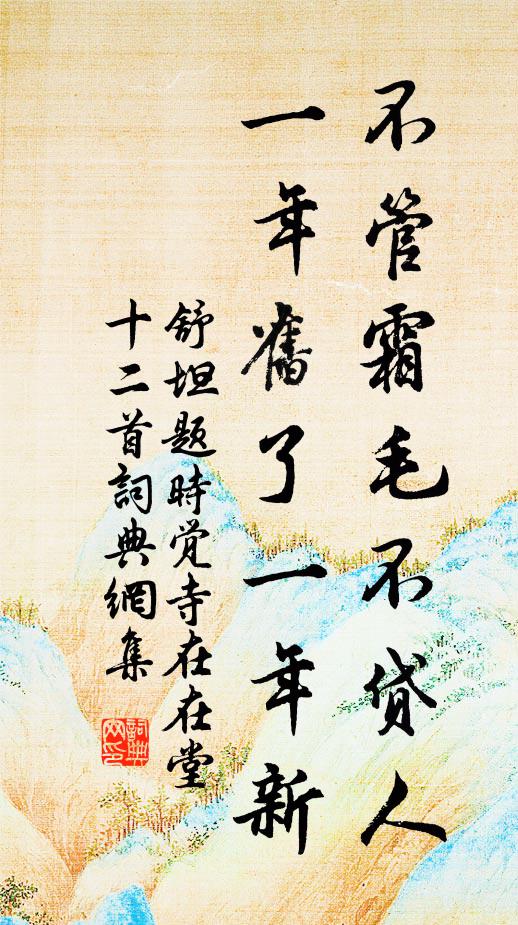 不管霜毛不贷人
一年舊了一年新
舒坦题時觉寺在在堂
十二首詞典網集
詞典网印